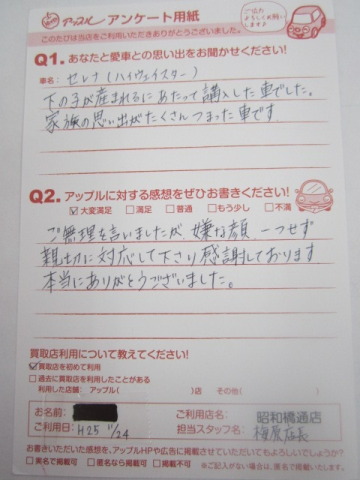 アップル アンケート用紙
このたびは当店をご利用いただきありがとうございました。
ご協力よろしくお願いします
Q1. あなたと愛車との思い出をお聞かせください!
車名: セレナ(ハイウェイスター)
下の子が産まれるにあたって購入した車でした。
家族の思い出がたくさんつまった車です
Q2. アップルに対する感想をぜひお書きください!
☑大変満足 □満足 □普通 □もう少し □不満
ご無理を言いましたが、嫌な顔一つせず
親切に対応して下さり感謝しております
本当にありがとうございました。
買取店利用について教えてください!
☑買取店を初めて利用
□過去に買取店を利用したことがある
利用した店舗: アップル( )店 その他( )
お名前:
ご利用店名: 昭和橋通店
ご利用日: H25 11/24
担当スタッフ名: 梅原店長
お書きいただいた感想を、アップルHPや広告に掲載させていただいてもよろしいでしょうか?
□実名で掲載可 □匿名なら掲載可 □掲載不可 ※ご記入がない場合は、匿名で掲載いたします。